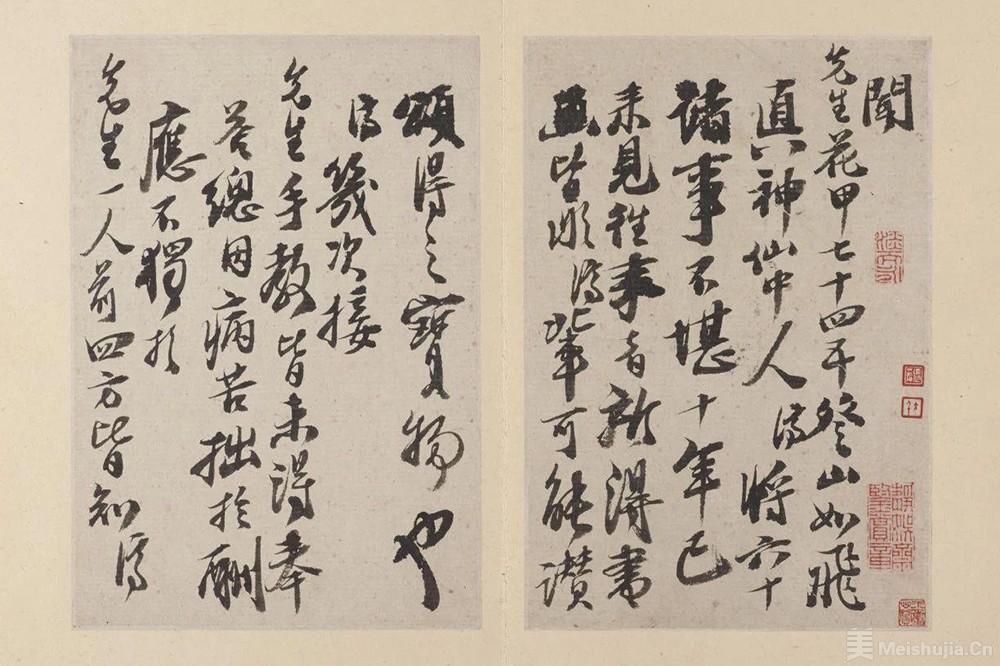 聞
先生花甲七十四五登山如飛
真神仙中人濟將六十
諸事不堪十年已
來見往來者新得書
畫皆非濟輩可能讚
頌得之寶物也
濟幾次接
先生手教皆未得奉
答總因病苦拙於酬
應不獨於
先生一人前四方皆知濟
美 Meishujia.Cn